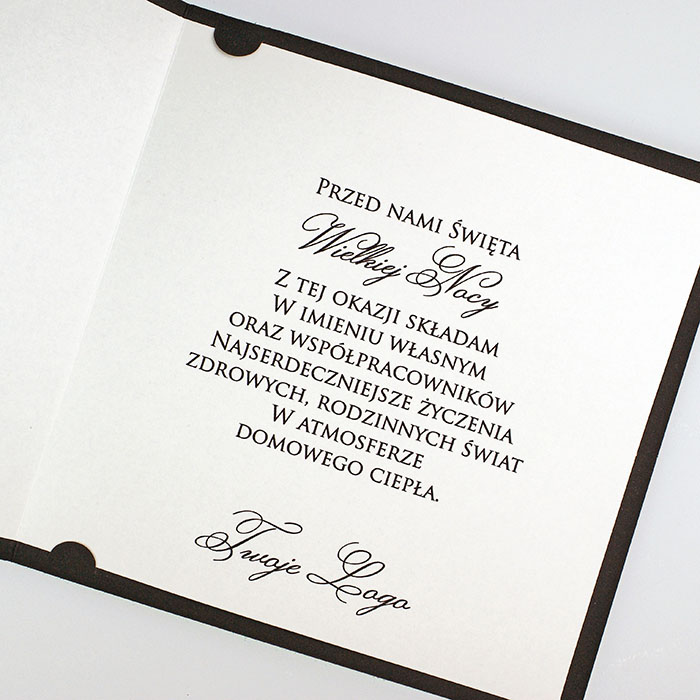 PRZED NAMI ŚWIĘTA
Wielkiej Nocy
Z TEJ OKAZJI SKŁADAM
W IMIENIU WŁASNYM
ORAZ WSPÓŁPRACOWNIKÓW
NAJSERDECZNIEJSZE ŻYCZENIA
ZDROWYCH, RODZINNYCH ŚWIAT
W ATMOSFERZE
DOMOWEGO CIEPŁA.
Twoje Logo